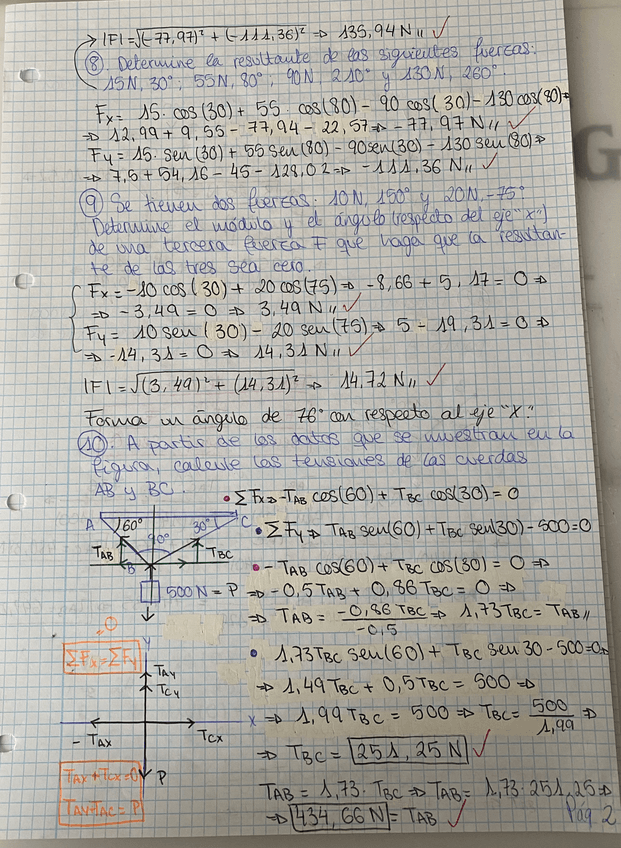 → |F| = √(-77,97)² + (-111,36)² ⇒ 135,94 N,, ✓
⑧ Determine la resultante de las siguientes fuerzas:
15N, 30°; 55N, 80°; 90N, 210° y 130N, 260°.
Fx = 15 · cos(30) + 55 · cos(80) - 90 cos(30) - 130 cos(80) ⇒
⇒ 12,99 + 9,55 - 77,94 - 22,57 ⇒ -77,97 N,, ✓
Fy = 15 · sen(30) + 55 sen(80) - 90 sen(30) - 130 sen(80) ⇒
⇒ 7,5 + 54,16 - 45 - 128,02 ⇒ -111,36 N,, ✓
⑨ Se tienen dos fuerzas: 10N, 150° y 20N, -75°
Determine el módulo y el ángulo (respecto del eje "x")
de una tercera fuerza F que haga que la resultan-
te de las tres sea cero.
Fx = -10 cos(30) + 20 cos(75) ⇒ -8,66 + 5,17 = 0 ⇒
⇒ -3,49 = 0 ⇒ 3,49 N,, ✓
Fy = 10 sen(30) - 20 sen(75) ⇒ 5 - 19,31 = 0 ⇒
⇒ -14,31 = 0 ⇒ 14,31 N,, ✓
|F| = √(3,49)² + (14,31)² ⇒ 14,72 N,, ✓
Forma un ángulo de 76° con respecto al eje "X".
⑩ A partir de los datos que se muestran en la
figura, calcule las tensiones de las cuerdas
AB y BC.
• ΣFx ⇒ -TAB cos(60) + TBC cos(30) = 0
A 60° 30° C
• ΣFy ⇒ TAB sen(60) + TBC sen(30) - 500 = 0
TAB 90° TBC
B
• -TAB cos(60) + TBC cos(30) = 0 ⇒
500 N = P
⇒ -0,5 TAB + 0,86 TBC = 0 ⇒
⇒ TAB = -0,86 TBC / -0,5 ⇒ 1,73 TBC = TAB,,
= 0
ΣFx = ΣFy
Y
• 1,73 TBC sen(60) + TBC sen 30 - 500 = 0 ⇒
TAy
TCy
⇒ 1,49 TBC + 0,5 TBC = 500 ⇒
X
⇒ 1,99 TBC = 500 ⇒ TBC = 500 / 1,99 ⇒
- TAx TCx
⇒ TBC = 251,25 N ✓
TAx + TCx = 0
P
TAy + TAC = P
TAB = 1,73 · TBC ⇒ TAB = 1,73 · 251,25 ⇒
⇒ 434,66 N = TAB ✓
Pág 2